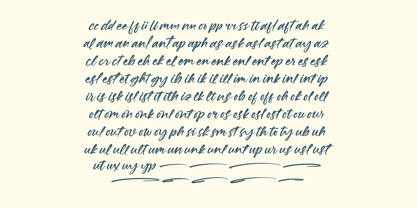 cc dd ee ff ii ll mm nn oo pp rr ss tt afl aft ah ak
al am an anl ant ap aph as ask asl ast at ay az
cl cr ct eb eh ek el em en enk enl ent ep er es esk
esl est et ght gy ib ih ik il ill im in ink inl int ip
ir is isk isl ist it ith iz lk lt us ob of off oh ok ol oll
olt om on onk onl ont op or os osk osl ost ot ou our
oul out ov ow oy ph si sk sm st sy th to ty ub uh
uk ul ull ult um un unk unl unt up ur us usl ust
ut ux uy yp